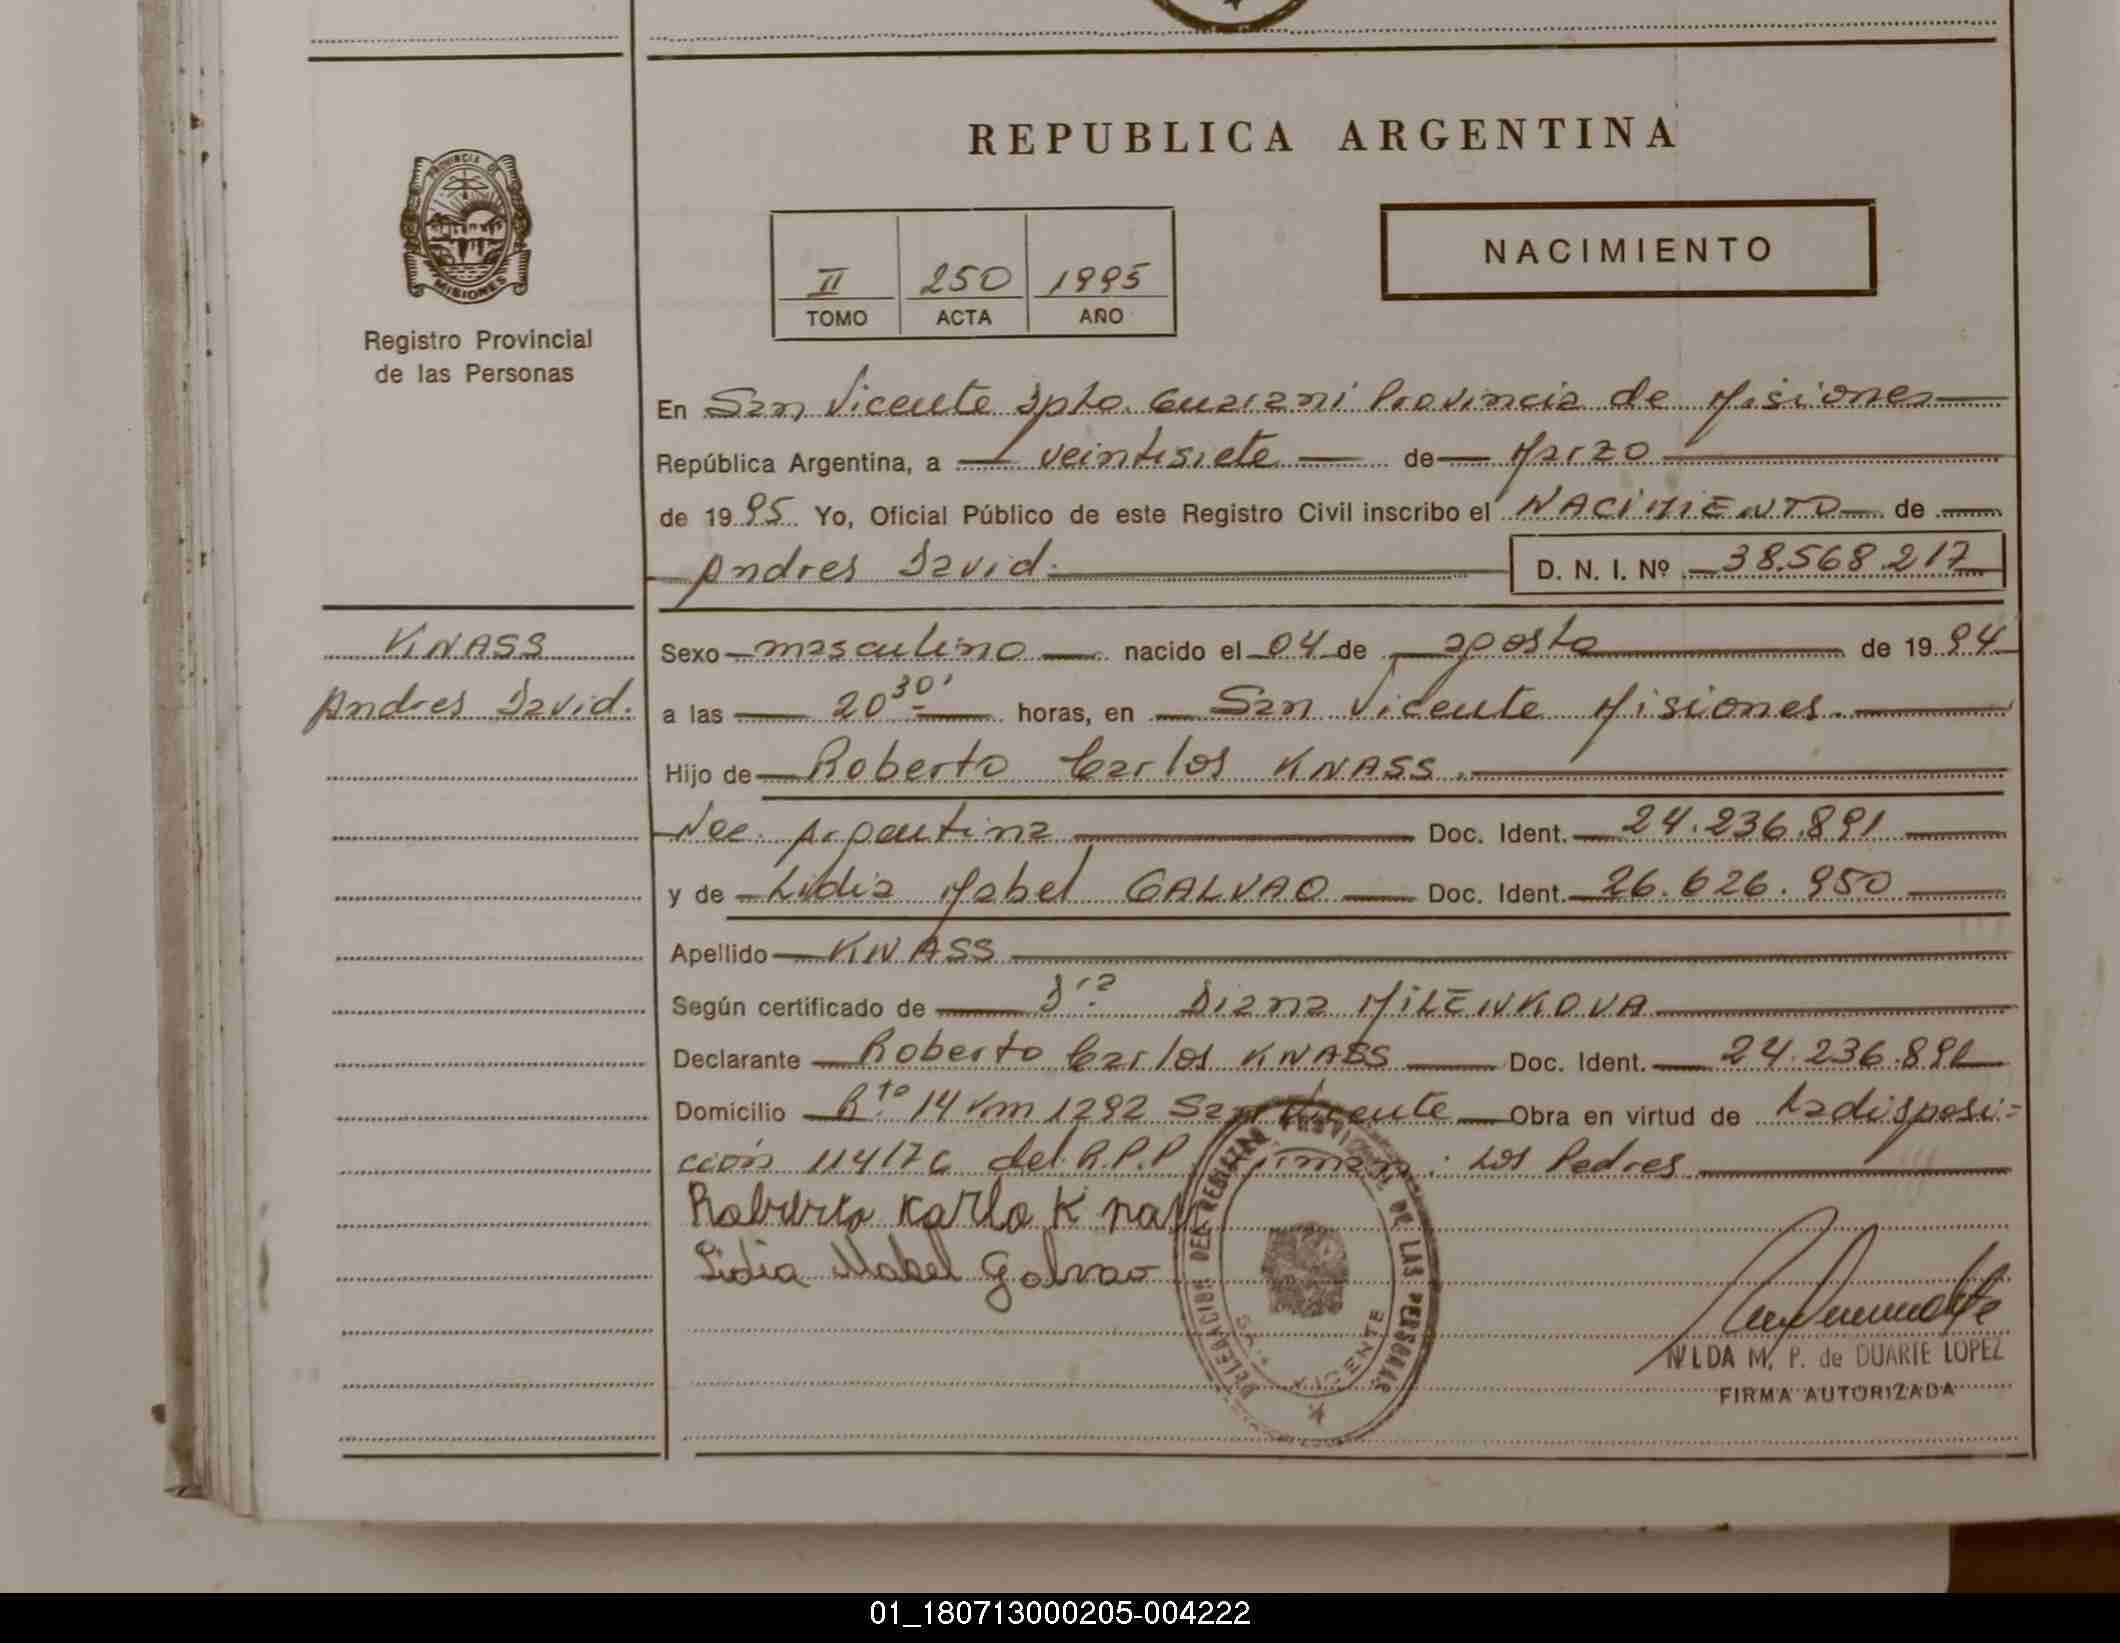 REPUBLICA ARGENTINA
PROVINCIA DE
MISIONES
Registro Provincial
de las Personas
NACIMIENTO
II 250 1995
TOMO ACTA AÑO
En San Vicente Dpto. Guarani Provincia de Misiones
República Argentina, a veintisiete de Marzo
de 1995. Yo, Oficial Público de este Registro Civil inscribo el NACIMIENTO de
Andres David. D. N. I. Nº 38.568.217
KNASS
Andres David.
Sexo masculino nacido el 04 de agosto de 1994
a las 20 30' horas, en San Vicente Misiones.
Hijo de Roberto Carlos KNASS.
Nac. Argentina Doc. Ident. 24.236.891
y de Lidia Mabel GALVAO Doc. Ident. 26.626.950
Apellido KNASS
Según certificado de Dra. Diana MILENKOVA
Declarante Roberto Carlos KNASS Doc. Ident. 24.236.891
Domicilio Rta. 14 Km 1292 San Vicente Obra en virtud de La disposi=
ción 114/76 del R.P.P. Firman: Los Padres
Roberto Karlo Knas
Lidia Mabel Galvao
DELEGACION DEL REGISTRO PROVINCIAL DE LAS PERSONAS
SAN VICENTE
NILDA M. P. de DUARTE LOPEZ
FIRMA AUTORIZADA
01_180713000205-004222